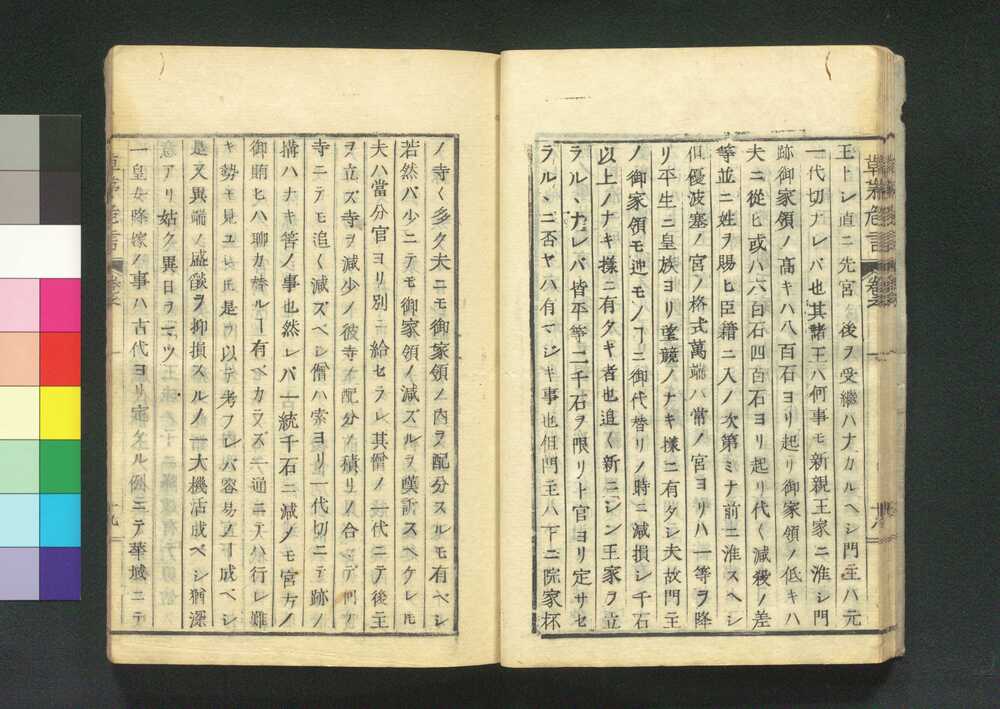 王トシ直ニ先宮ノ後ヲ受繼ハナカルヘシ門主ハ元
一代切ナレバ也其諸王ハ何事モ新親王家ニ准シ門
跡御家領ノ高キハ八百石ヨリ起リ御家領ノ低キハ
夫ニ從ヒ或ハ六百石四百石ヨリ起リ代〱減殺ノ差
等並ニ姓ヲ賜ヒ臣籍ニ入ノ次第ミナ前ニ准スヘシ
但優波塞ノ宮ノ格式萬端ハ常ノ宮ヨリハ一等ヲ降
リ平生ニ皇族ヨリ望競ノナキ樣ニ有タシ夫故門主
ノ御家領モ迚モノヿニ御代替リノ時ニ減損シ千石
以上ノナキ樣ニ有タキ者也追〱新ニシン王家ヲ立
ラル丶ナレバ皆平等ニ千石ヲ限リト官ヨリ定サセ
ラル丶ニ否ヤハ有マジキ事也但門主ハ下ニ院家杯
ノ寺〱多ク夫ニモ御家領ノ內ヲ配分スルモ有ベシ
若然バ少ニテモ御家領ノ減ズルヲ嘆訴スヘケレ𪜈
夫ハ當分官ヨリ別ニ給セラレ其僧ノ一代ニテ後王
ヲ立ズ寺ヲ減少ノ彼寺ニ配分ノ積リノ合シテ門ノ
寺ニテモ追〱減ズベシ僧ハ素ヨリ一代切ニテ跡ノ
搆ハナキ筈ノ事也然レバ一統千石ニ減ノモ宮方ノ
御賄ヒハ聊カ替ルヿ有ベカラズ一通ニテハ行レ難
キ勢モ見ユレ𪜈是ヲ以テ考フレバ容易ノヿ成ベシ
是又異端ノ盛燄ヲ抑損スルノ一大機活成ベシ猶深
意アリ姑ク異日ヲマツ
一皇女降嫁ノ事ハ古代ヨリ定タル例ニテ華域ニテ
草茅危言
卷之一
十八
草茅危言
卷之一
十九